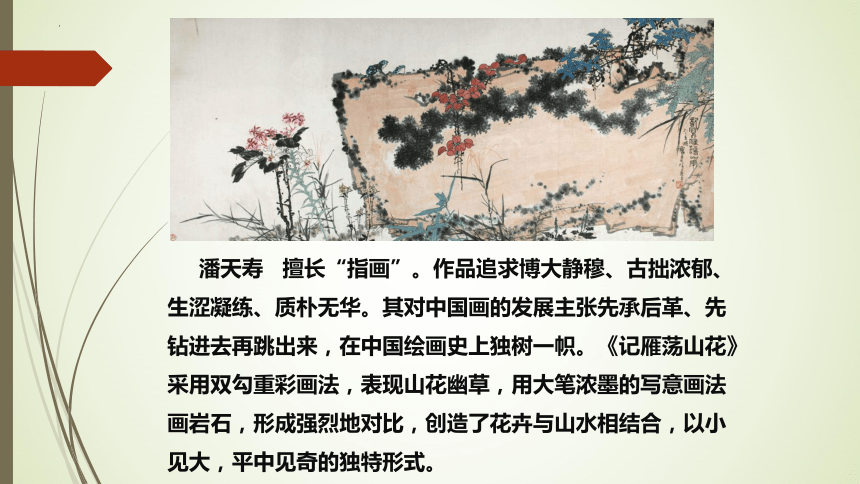 潘天寿 擅长“指画”。作品追求博大静穆、古拙浓郁、
生涩凝练、质朴无华。其对中国画的发展主张先承后革、先
钻进去再跳出来，在中国绘画史上独树一帜。《记雁荡山花》
采用双勾重彩画法，表现山花幽草，用大笔浓墨的写意画法
画岩石，形成强烈地对比，创造了花卉与山水相结合，以小
见大，平中见奇的独特形式。